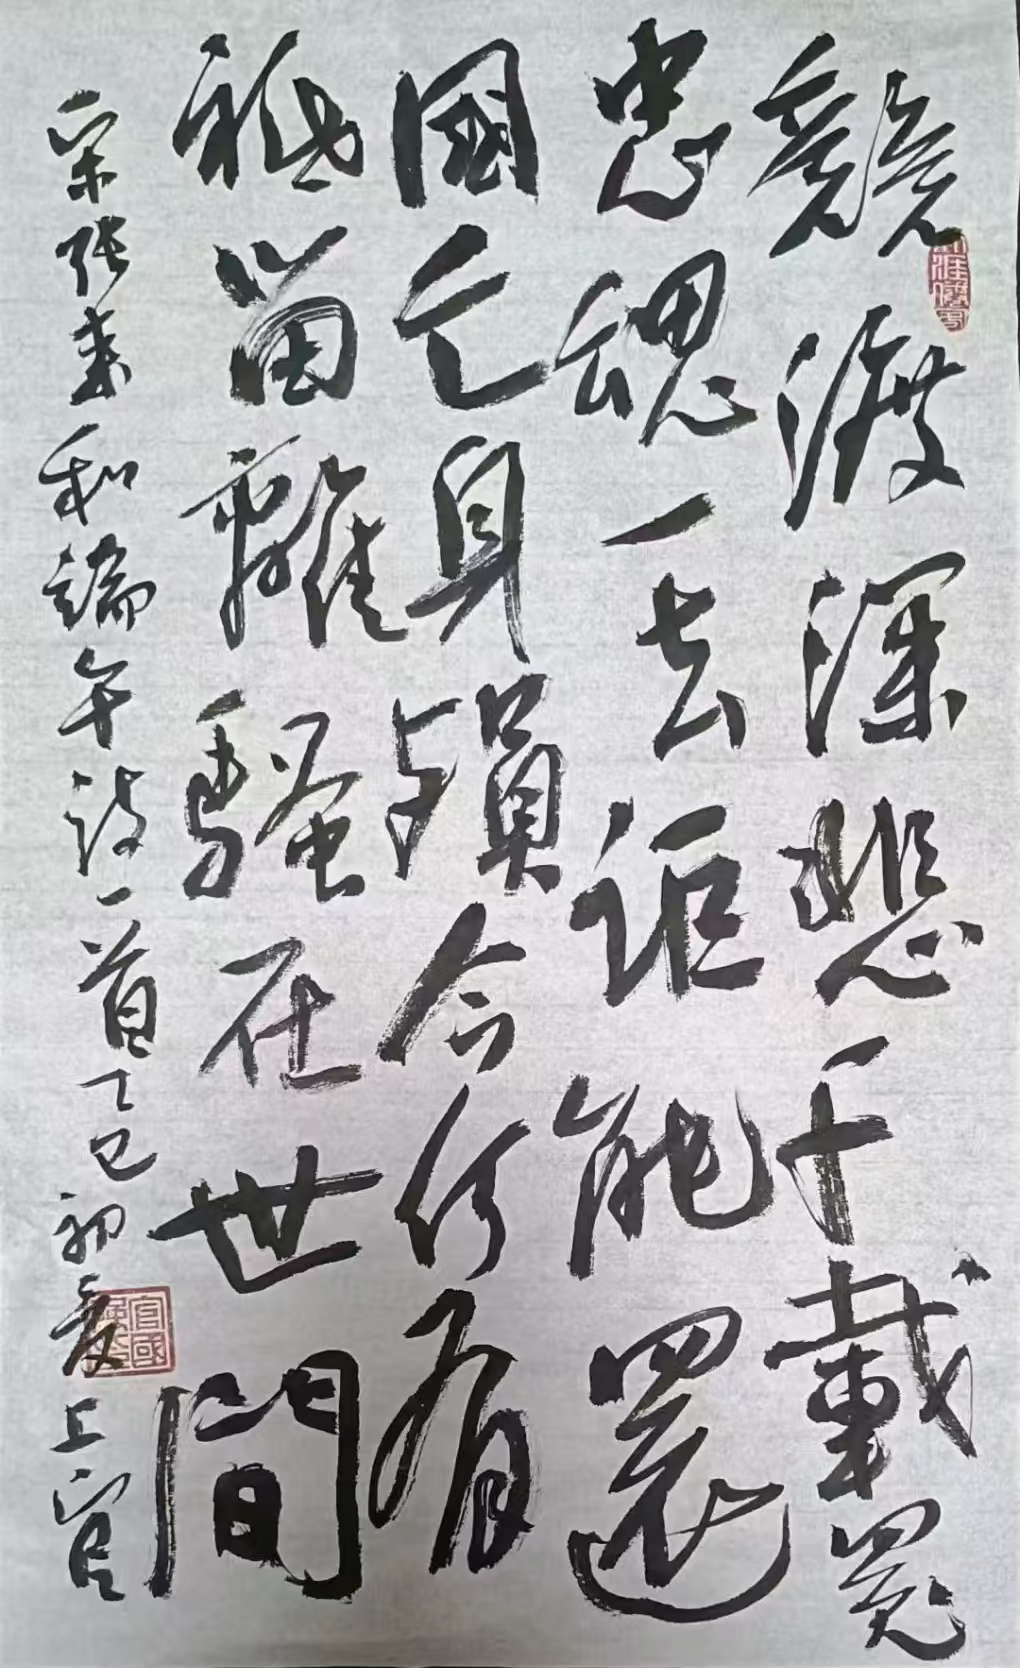 競渡深悲千載冤
忠魂一去詎能還
國亡身殞今何有
祗留離騷在世間
宋張耒和端午詩一首乙巳初夏上官